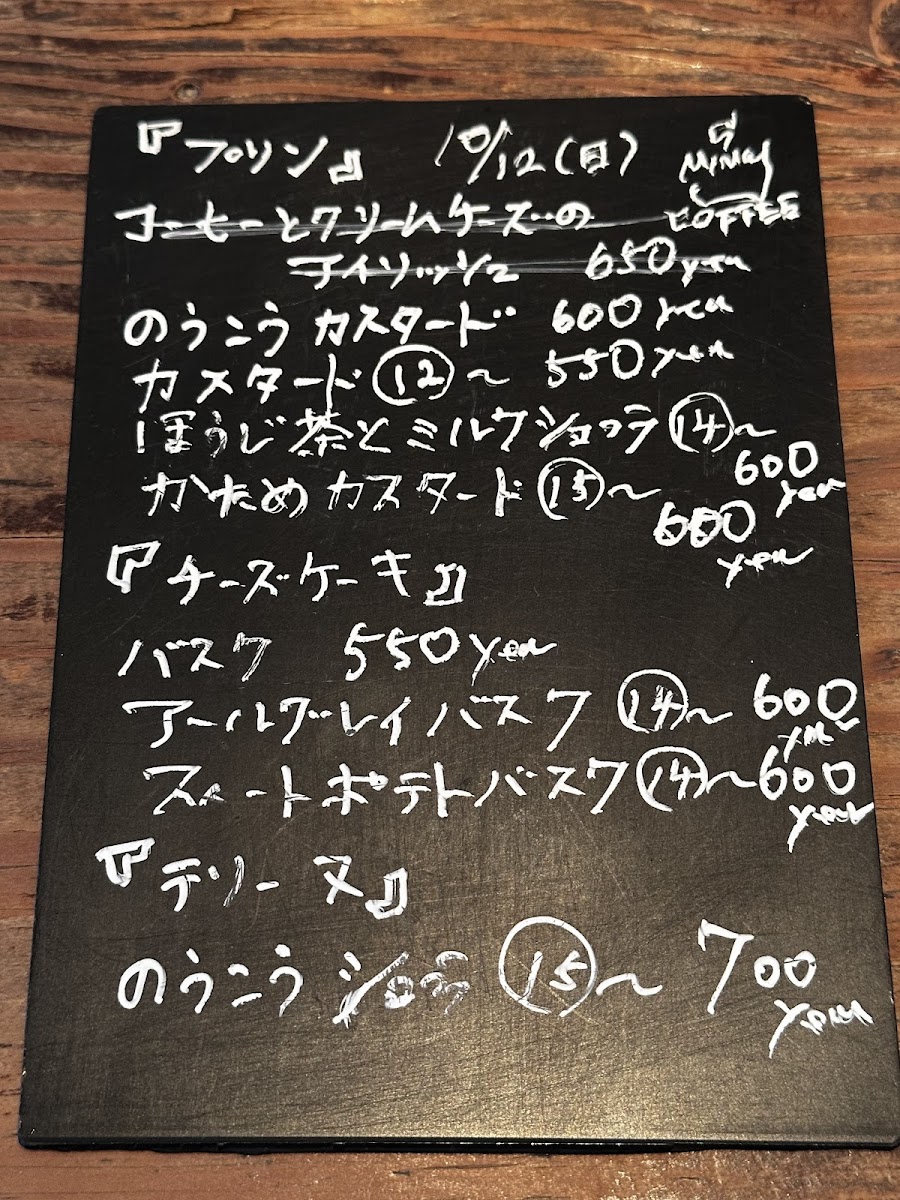 『プリン』 10/12(日)
MIMOY COFFEE
コーヒーとクリームチーズの
テイソッシュ 650yen
のうこうカスタード 600yen
カスタード⑫〜 550yen
ほうじ茶とミルクショコラ⑭〜
600yen
かためカスタード⑮〜
600yen
『チーズケーキ』
バスク 550yen
アールグレイバスク ⑭〜 600yen
スイートポテトバスク⑭〜600yen
『テリーヌ』
のうこうショコラ ⑮〜 700yen